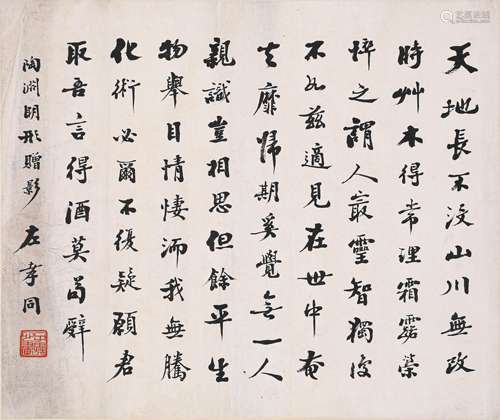 天地長不沒山川無改
時艸木得常理霜露榮
悴之謂人冣靈智獨復
不如茲適見在世中奄
去靡歸期奚覺無一人
親識豈相思但餘平生
物舉目情悽洏我無騰
化術必爾不復疑願君
取吾言得酒莫苟辭
陶淵明形贈影 左孝同